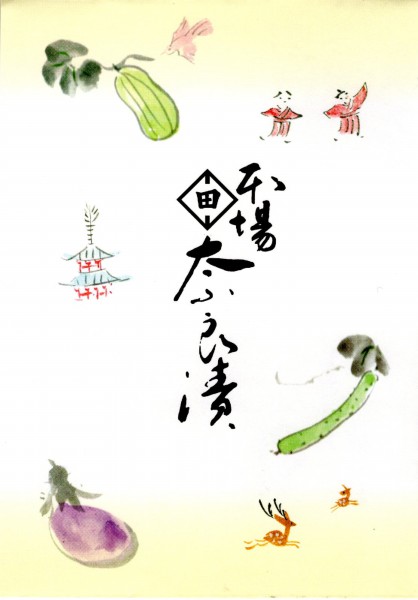 本場
田
奈良漬